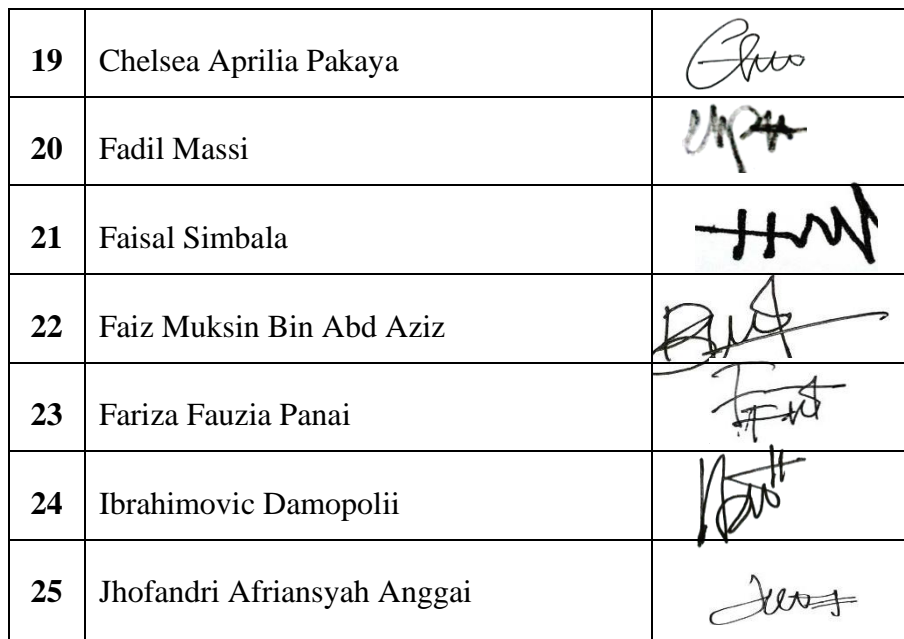 19 Chelsea Aprilia Pakaya
20 Fadil Massi
21 Faisal Simbala
22 Faiz Muksin Bin Abd Aziz
23 Fariza Fauzia Panai
24 Ibrahimovic Damopolii
25 Jhofandri Afriansyah Anggai